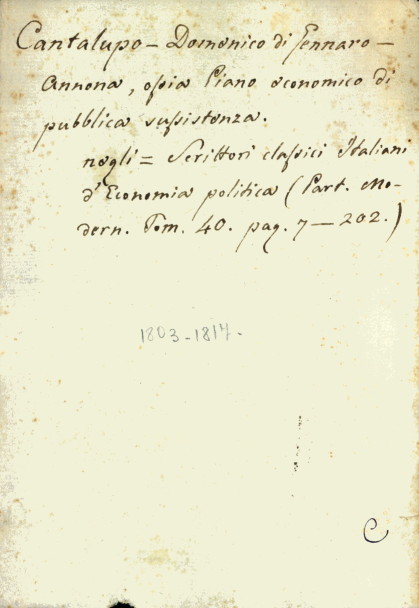 Cantalupo - Domenico di Gennaro -
Annona, ossia Piano economico di
pubblica sussistenza.
negli = Scrittori classici Italiani
d'Economia politica (Part. Mo-
dern. Tom. 40. pag. 7 - 202.)
1803-1817-
C